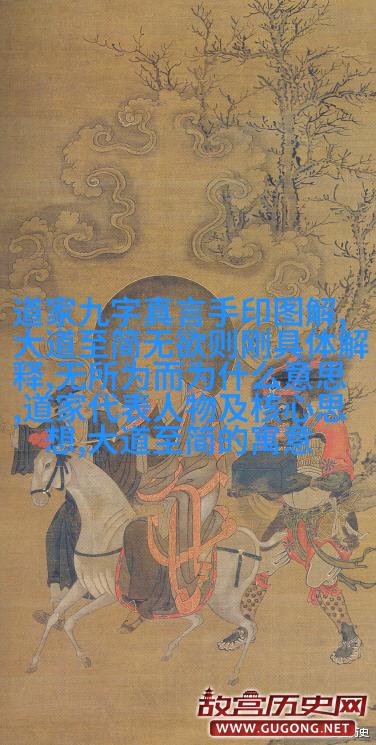 道家九字真言手印图解,
大道至简无欲则刚具体解
释,无所为而为什么意思
,道家代表人物及核心思
想,大道至简的寓意
故宫历史网
WWW.GUGONG.NET
历史